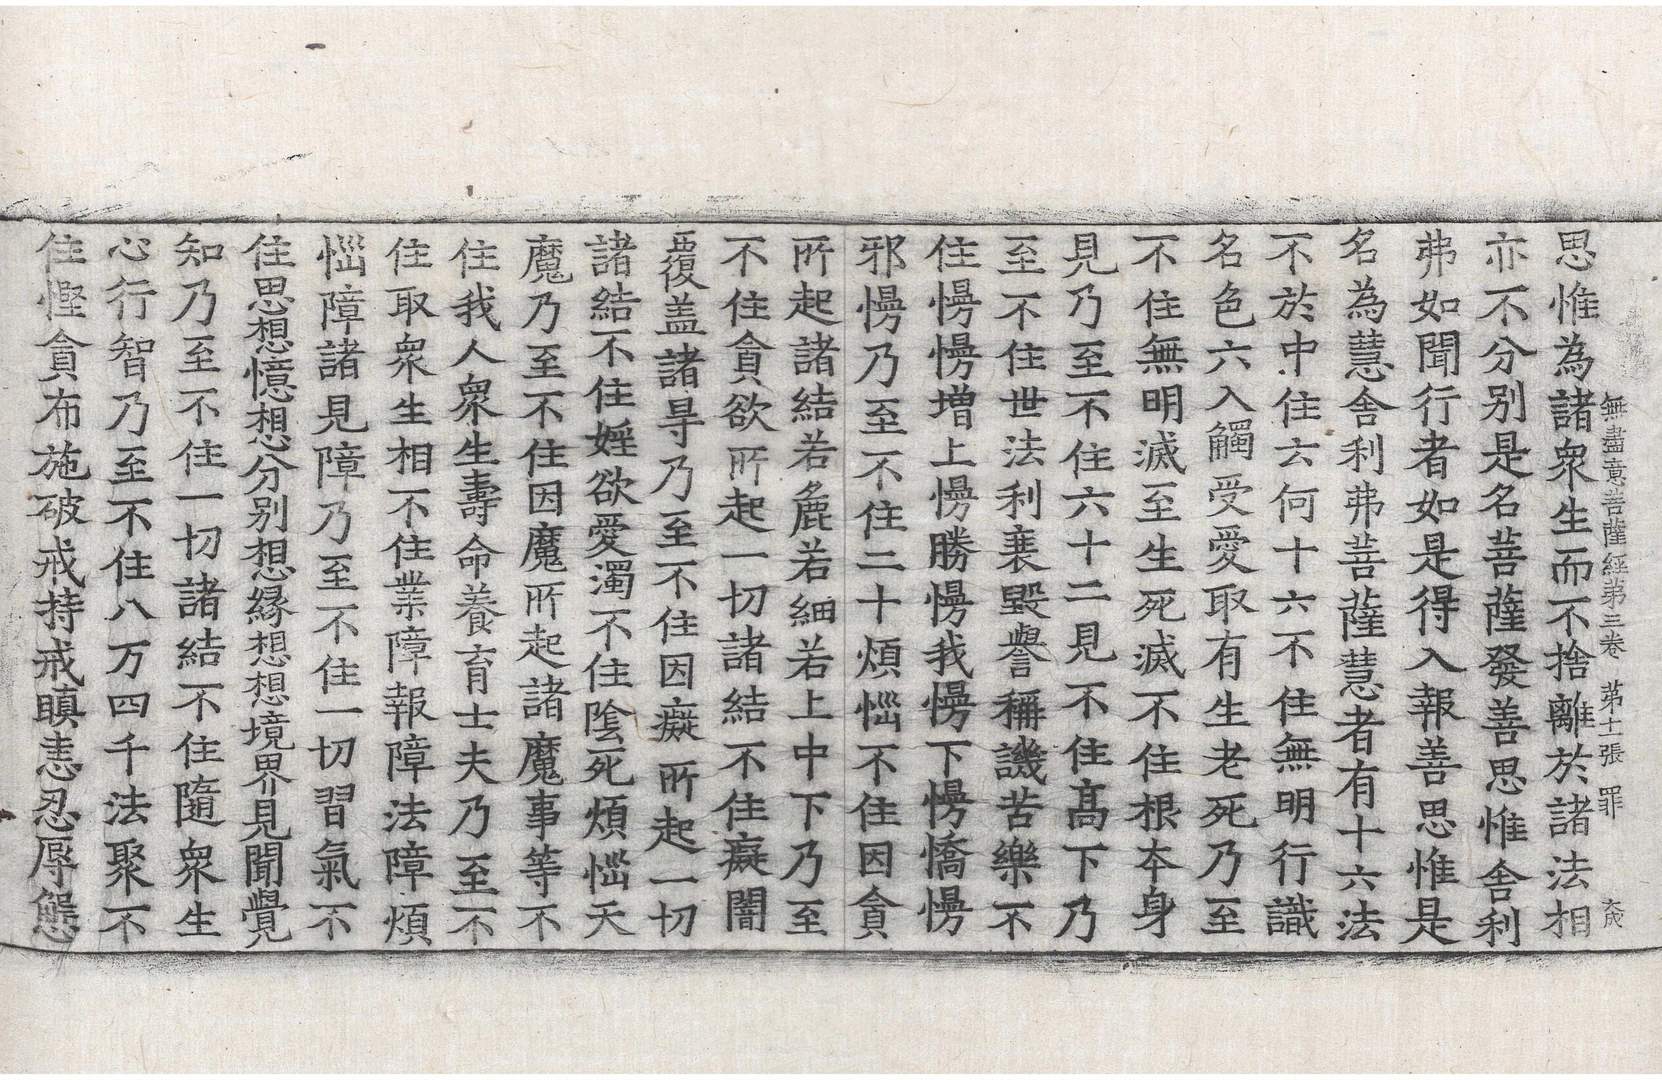 無盡意菩薩經第三卷　第十一張　罪　大成
思惟為諸衆生而不捨離於諸法相
亦不分别是名菩薩發善思惟舍利
弗如聞行者如是得入報善思惟是
名為慧舍利弗菩薩慧者有十六法
不於中住云何十六不住無明行識
名色六入觸受愛取有生老死乃至
不住無明滅至生死滅不住根夲身
見乃至不住六十二見不住髙下乃
至不住世法利衰毀譽稱譏苦樂不
住慢慢增上慢勝慢我慢下慢憍慢
邪慢乃至不住二十煩惱不住因貪
所起諸結若麁若細若上中下乃至
不住貪欲所起一切諸結不住癡闇
覆盖諸㝵乃至不住因癡所起一切
諸結不住婬欲愛濁不住陰死煩惱天
魔乃至不住因魔所起諸魔事等不
住我人衆生壽命養育士夫乃至不
住取衆生相不住業障報障法障煩
惱障諸見障乃至不住一切習氣不
住思想憶想分别想緣想想境界見聞覺
知乃至不住一切諸結不住隨衆生
心行智乃至不住八万四千法聚不
住慳貪布施破戒持戒瞋恚忍辱懈